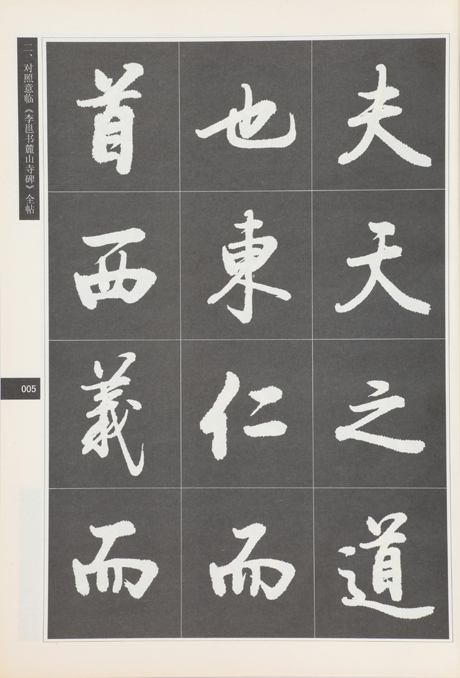 夫天之道
也東仁而
首西義而
二、对照意临《李邕书麓山寺碑》全帖
005